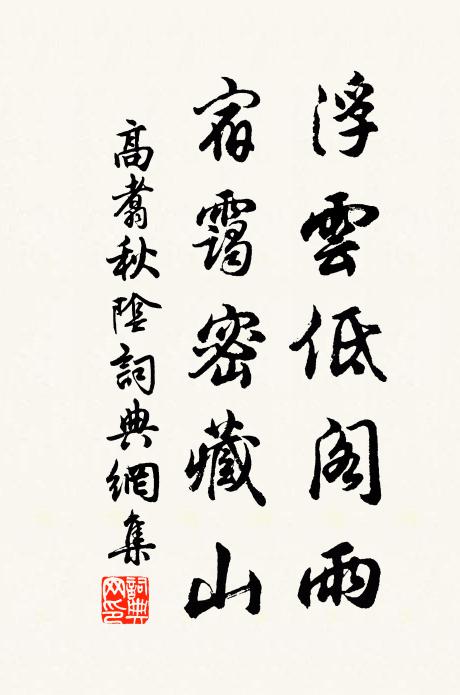 浮雲低閣雨
宿靄密藏山
高翥秋陰詞典網集
詞典網印